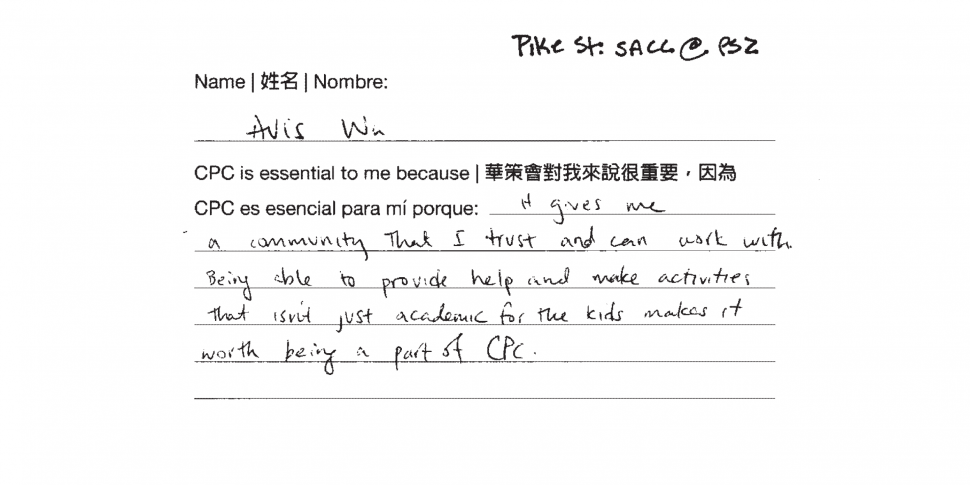 Pike St. SACC @ PS2
Name | 姓名 | Nombre:
Avis Wu
CPC is essential to me because | 華策會對我來說很重要，因為
CPC es esencial para mí porque: It gives me
a community That I trust and can work with.
Being able to provide help and make activities
That isn't just academic for the kids makes it
worth being a part of CPC.